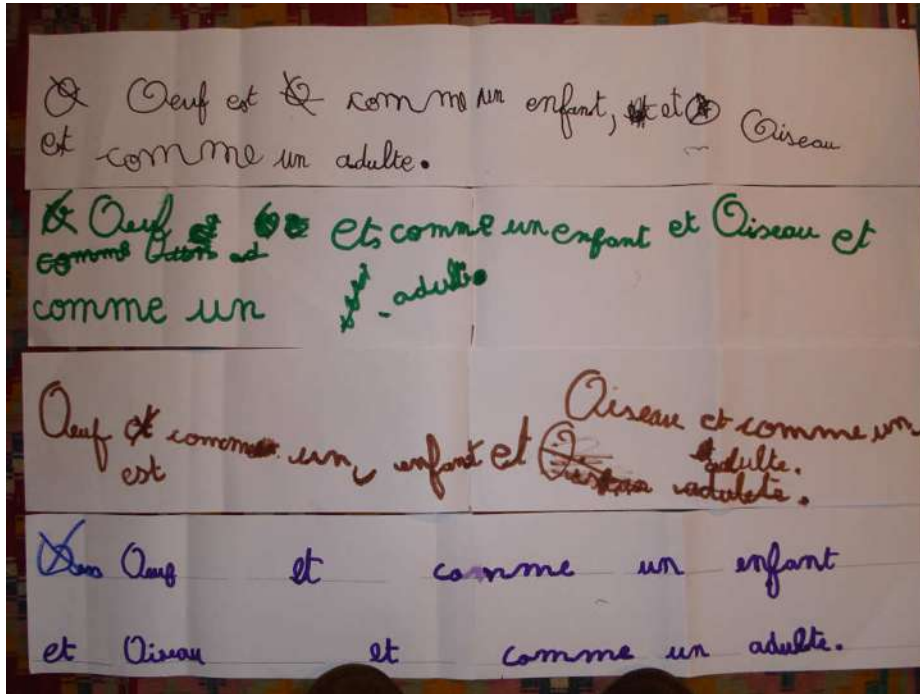 Oeuf est comme un enfant, et Oiseau
est comme un adulte.
Oeuf ets comme un enfant et Oiseau et
comme un adulte.
Oeuf est comme un enfant et Oiseau et comme un
adulte.
adulete.
Oeuf et comme un enfant
et Oiseau et comme un adulte.